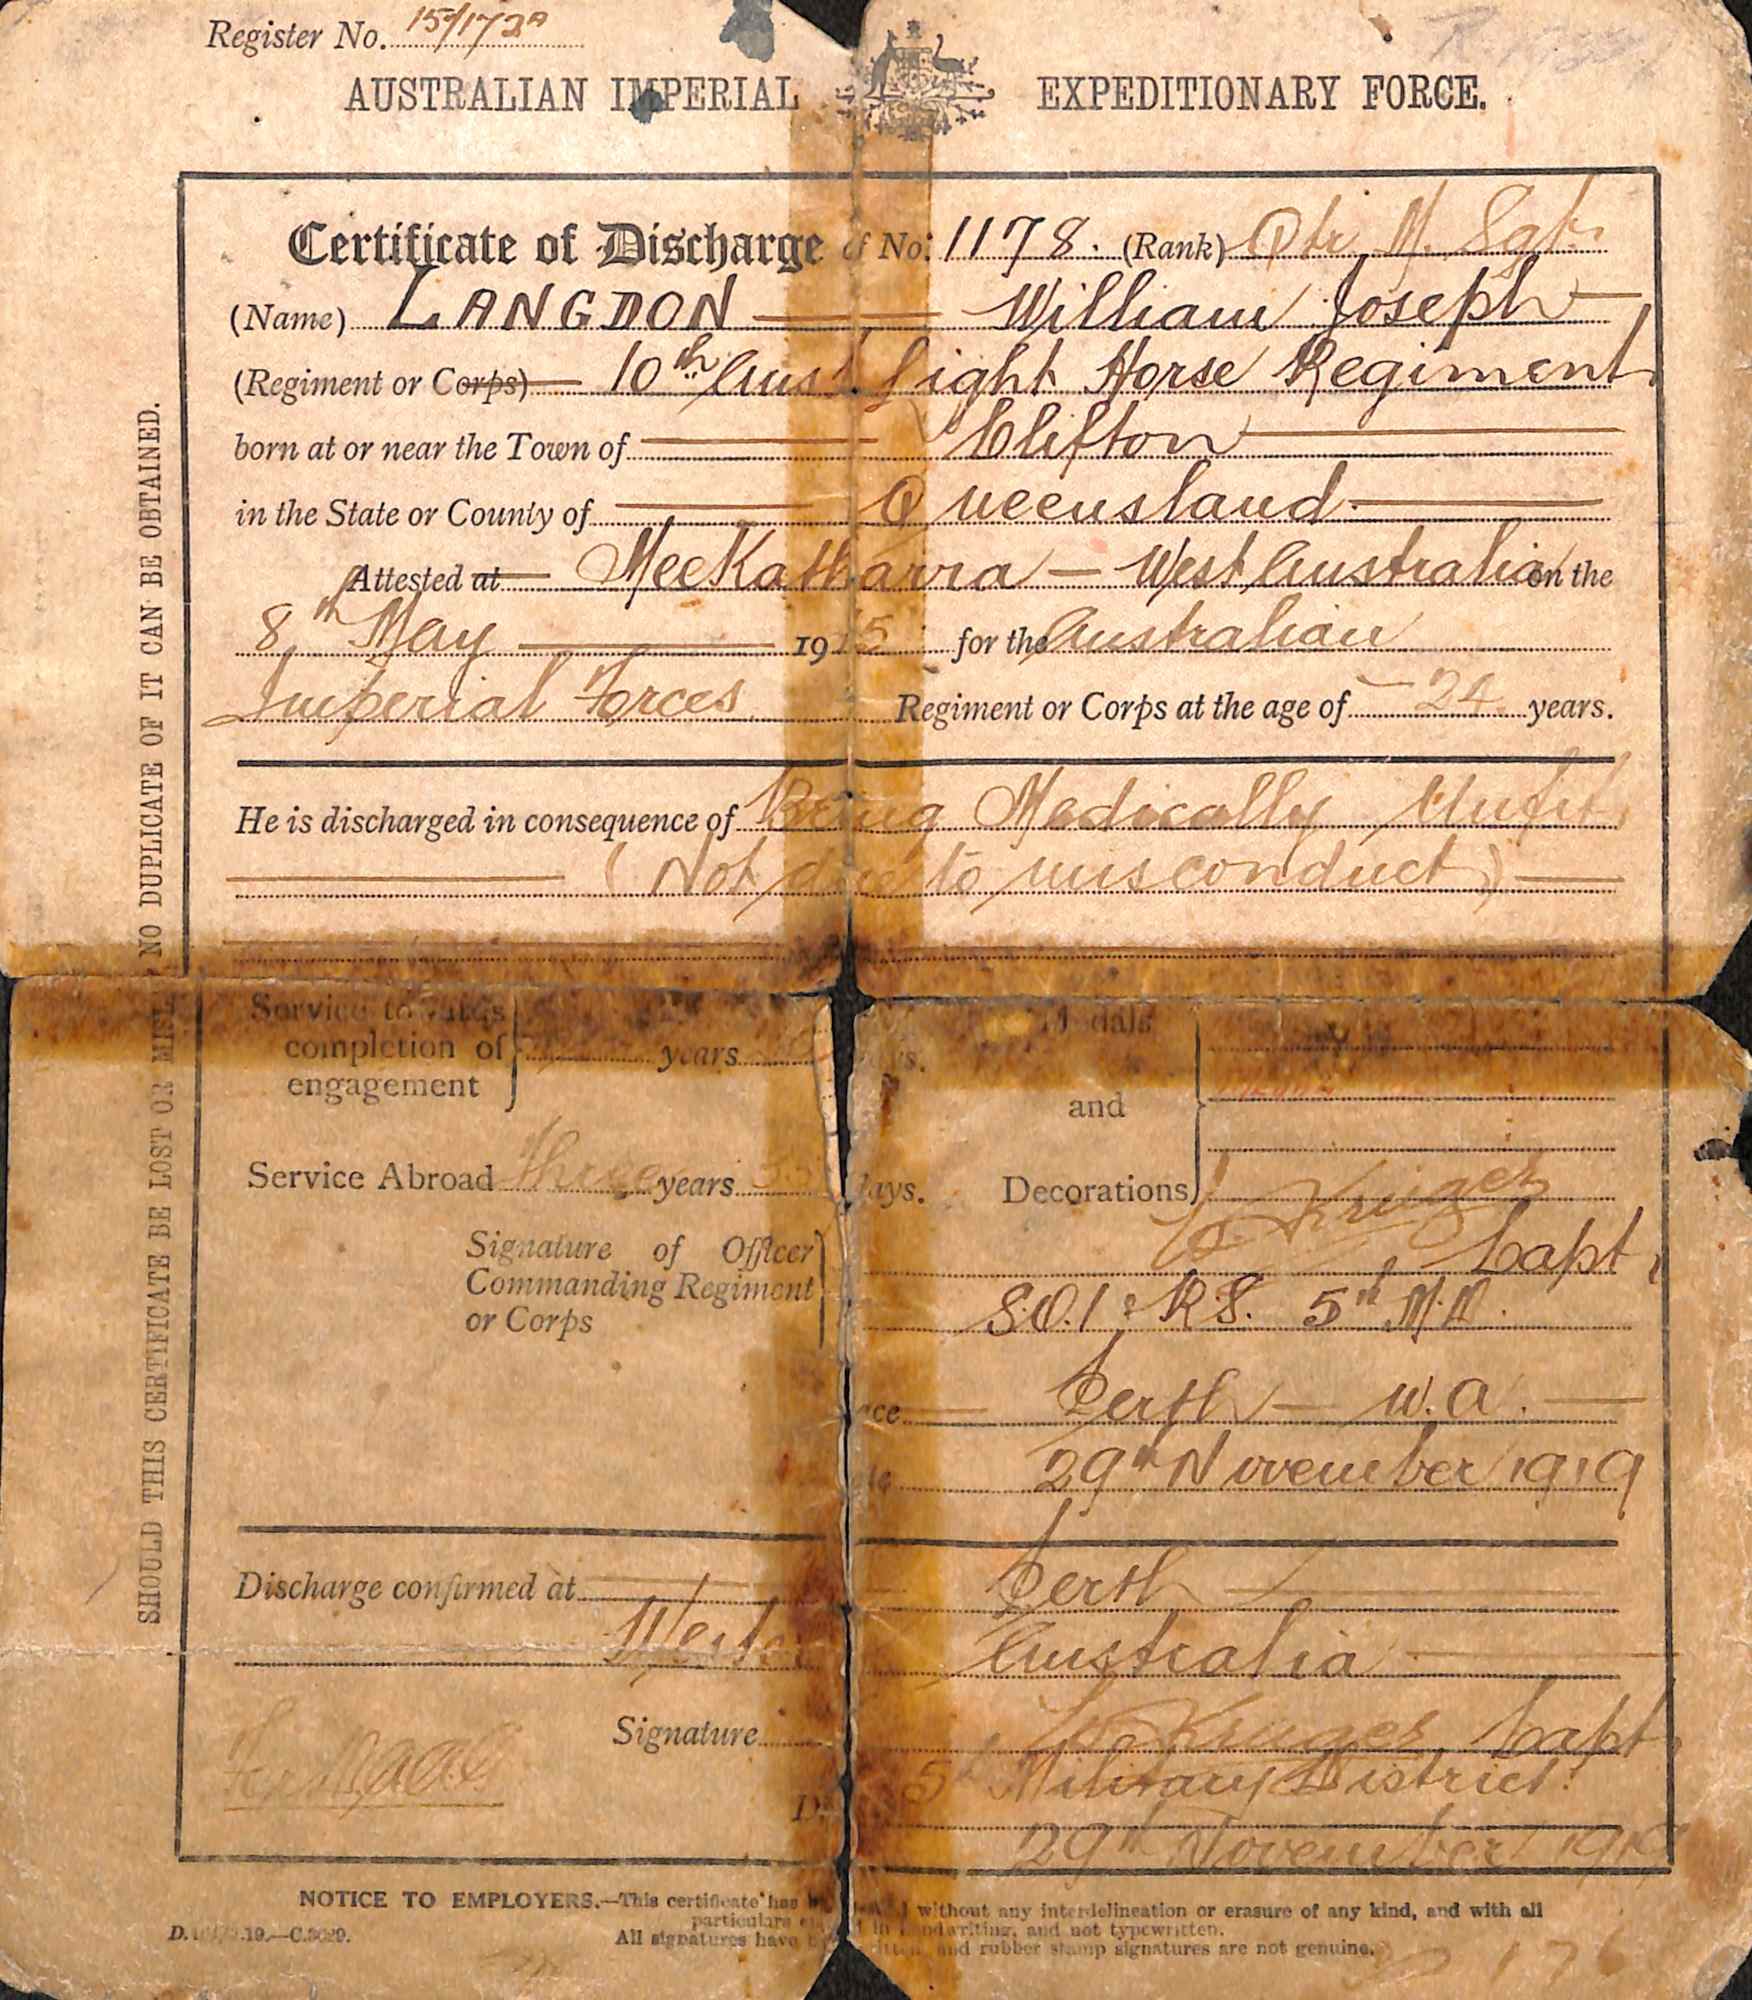 Register No. 15/172A
AUSTRALIAN IMPERIAL EXPEDITIONARY FORCE.
Certificate of Discharge of No. 1178. (Rank) Qtr M. Sgt.
(Name) LANGDON William Joseph
(Regiment or Corps) 10th Aust Light Horse Regiment
born at or near the Town of Clifton
in the State or County of Queensland
Attested at Meekatharra - West Australia on the
8th May 1915 for the Australian
Imperial Forces Regiment or Corps at the age of 24 years.
He is discharged in consequence of Being Medically Unfit
(Not due to misconduct)
Service towards completion of engagement years days.
Medals and Decorations
Service Abroad three years days.
Signature of Officer Commanding Regiment or Corps
Kruger Capt
S.O.I. & R.S. 5th M.D.
Perth - W.A.
29th November 1919
Discharge confirmed at Perth
Western Australia
Signature Kruger Capt
5th Military District.
29th November 1919
NOTICE TO EMPLOYERS.—This certificate has without any interdelineation or erasure of any kind, and with all
particulars in handwriting, and not typewritten.
All signatures have and rubber stamp signatures are not genuine.
SHOULD THIS CERTIFICATE BE LOST OR NO DUPLICATE OF IT CAN BE OBTAINED.